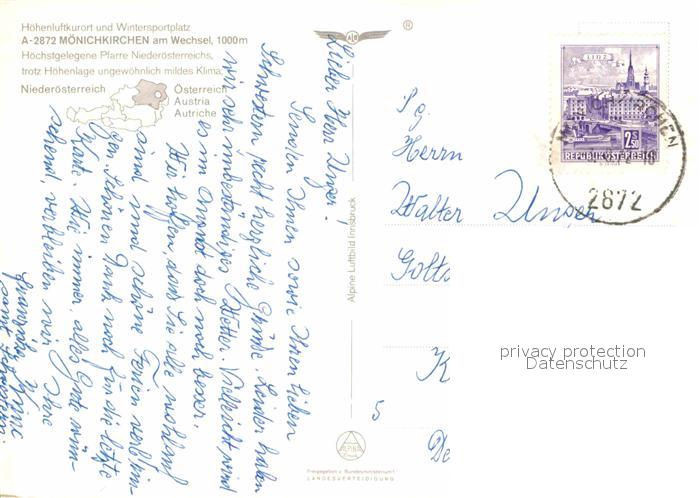 Höhenluftkurort und Wintersportplatz
A-2872 MÖNICHKIRCHEN am Wechsel, 1000m
Höchstgelegene Pfarre Niederösterreichs,
trotz Höhenlage ungewöhnlich mildes Klima,
Niederösterreich
Österreich
Austria
Autriche
Lieber Herr Unger!
Senden Ihnen sowie Ihren lieben
Schwestern recht herzliche Grüße. Leider haben
wir sehr unbeständiges Wetter. Vielleicht wird
es im August doch noch besser.
Wir hoffen, dass Sie alle wohlauf
sind und schöne Ferien verbrin-
gen. Schönen Dank noch für die letzte
Karte. Wie immer, alles Gute wün-
schend, verbleiben wir Ihre
samt
Alpine Luftbild Innsbruck
®
LINZ
2S50
REPUBLIK ÖSTERREICH
2872
Sg.
Herrn
Walter Unger
Golts
K
5
De
privacy protection
Datenschutz
ALPINA
Freigegeben v. Bundesministerium f.
LANDESVERTEIDIGUNG